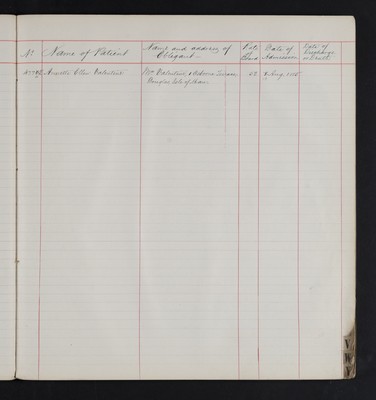 No. Name of Patient Name and address of Obligant Date of Bond Date of Admission Date of Discharge or Death
Annette Ellen Valentine Mr Valentine, Terrace 8 Aug.
Douglas Isle of Man
V
W
Y